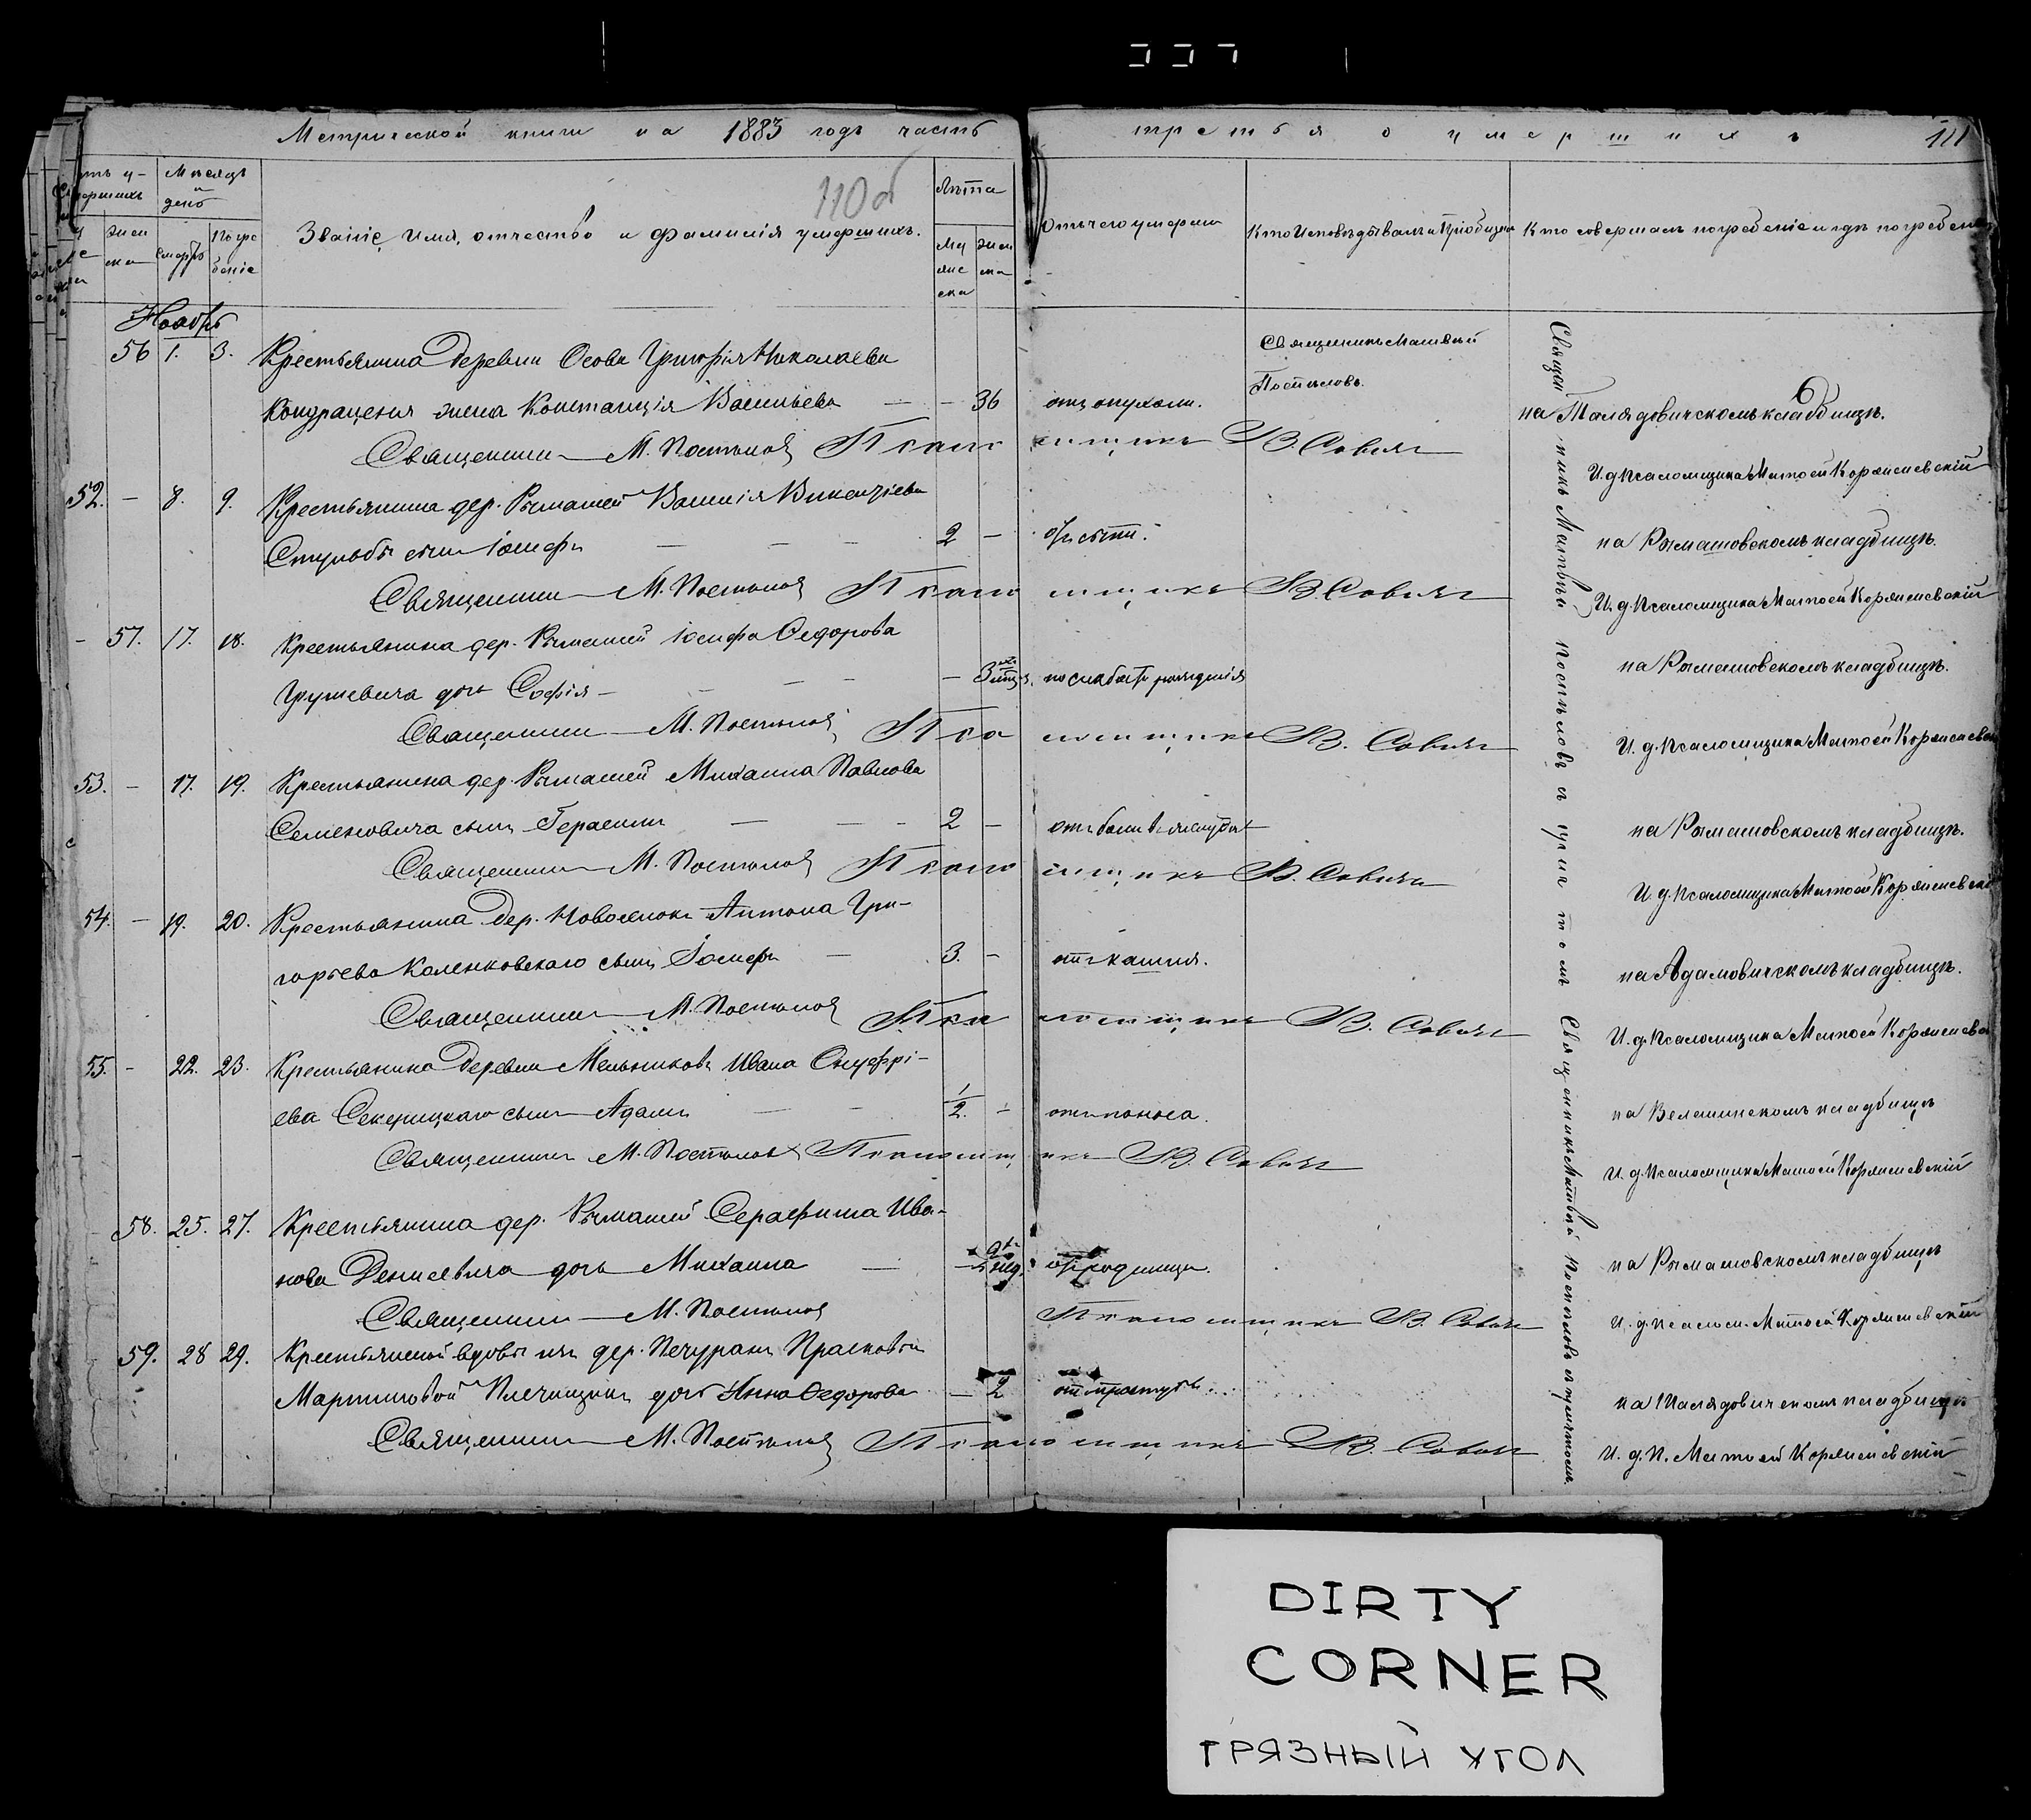 Метрической книги на 1883 годъ часть третья о умершихъ
111
110об
Мѣсяцъ и день
Лѣта
Званіе, имя, отчество и фамилія умершихъ.
Отъ чего умерли
Кто исповѣдывалъ и пріобщалъ
Кто совершалъ погребеніе и гдѣ погребены
жен ска
смерть
Погре беніе
му жес ска
жен ска
Ноябрь
56 1. 3. Крестьянина деревни Осова Григорія Николаева
Священникъ Матвѣй
Постѣловъ.
Кондраценя жена Констанція Васильева — — 36 отъ опухоли.
на Малядовичскомъ кладбищѣ.
Священникъ М. Постѣловъ Псаломщикъ В. Савичъ
И. д. Псаломщика Матѳей Корженевскій
52. — 8. 9. Крестьянина дер. Рымашей Василія Викентіева
Стульбы сынъ Іосифъ — — — 2 —
на Рымашовскомъ кладбищѣ.
Священникъ М. Постѣловъ Псаломщикъ В. Савичъ
И. д. Псаломщика Матѳей Корженевскій
— 57. 17. 18. Крестьянина дер. Рымашей Іосифа Ѳедорова
Грушевича дочь Софія — — — — — 3 по слабости рожденія
на Рымашовскомъ кладбищѣ.
Священникъ М. Постѣловъ Псаломщикъ В. Савичъ
И. д. Псаломщика Матѳей Корженевскій
53. — 17. 19. Крестьянина дер. Рымашей Михаила Павлова
Семеновича сынъ Герасимъ — — — 2 — отъ боли въ желудкѣ
на Рымашовскомъ кладбищѣ.
Священникъ М. Постѣловъ Псаломщикъ В. Савичъ
И. д. Псаломщика Матѳей Корженевскій
54. — 19. 20. Крестьянина дер. Новоселокъ Антона Гри-
горьева Коленковскаго сынъ Іосифъ — 3. — отъ кашля.
на Адамовичскомъ кладбищѣ.
Священникъ М. Постѣловъ Псаломщикъ В. Савичъ
И. д. Псаломщика Матѳей Корженевскій
55. — 22. 23. Крестьянина деревни Мельниковъ Ивана Онуфрі-
ева Секерицкаго сынъ Адамъ — — 1/2. — отъ поноса.
на Велешинскомъ кладбищѣ
Священникъ М. Постѣловъ Псаломщикъ В. Савичъ
И. д. Псаломщика Матѳей Корженевскій
58. 25. 27. Крестьянина дер. Рымашей Серафима Ива-
нова Денисевича дочь Михалина — — отъ родимца.
на Рымашовскомъ кладбищѣ
Священникъ М. Постѣловъ Псаломщикъ В. Савичъ
И. д. Псалом. Матѳей Корженевскій
59. 28 29. Крестьянской вдовы изъ дер. Печурани Прасковьи
Мартиновой Плечищихи дочь Анна Ѳедорова — 2 отъ простуды.
на Малядовичскомъ кладбищѣ
Священникъ М. Постѣловъ Псаломщикъ В. Савичъ
И. д. П. Матѳей Корженевскій
Священникъ Матѳей Постѣловъ
Священникъ Матѳей Постѣловъ
DIRTY
CORNER
ГРЯЗНЫЙ УГОЛ